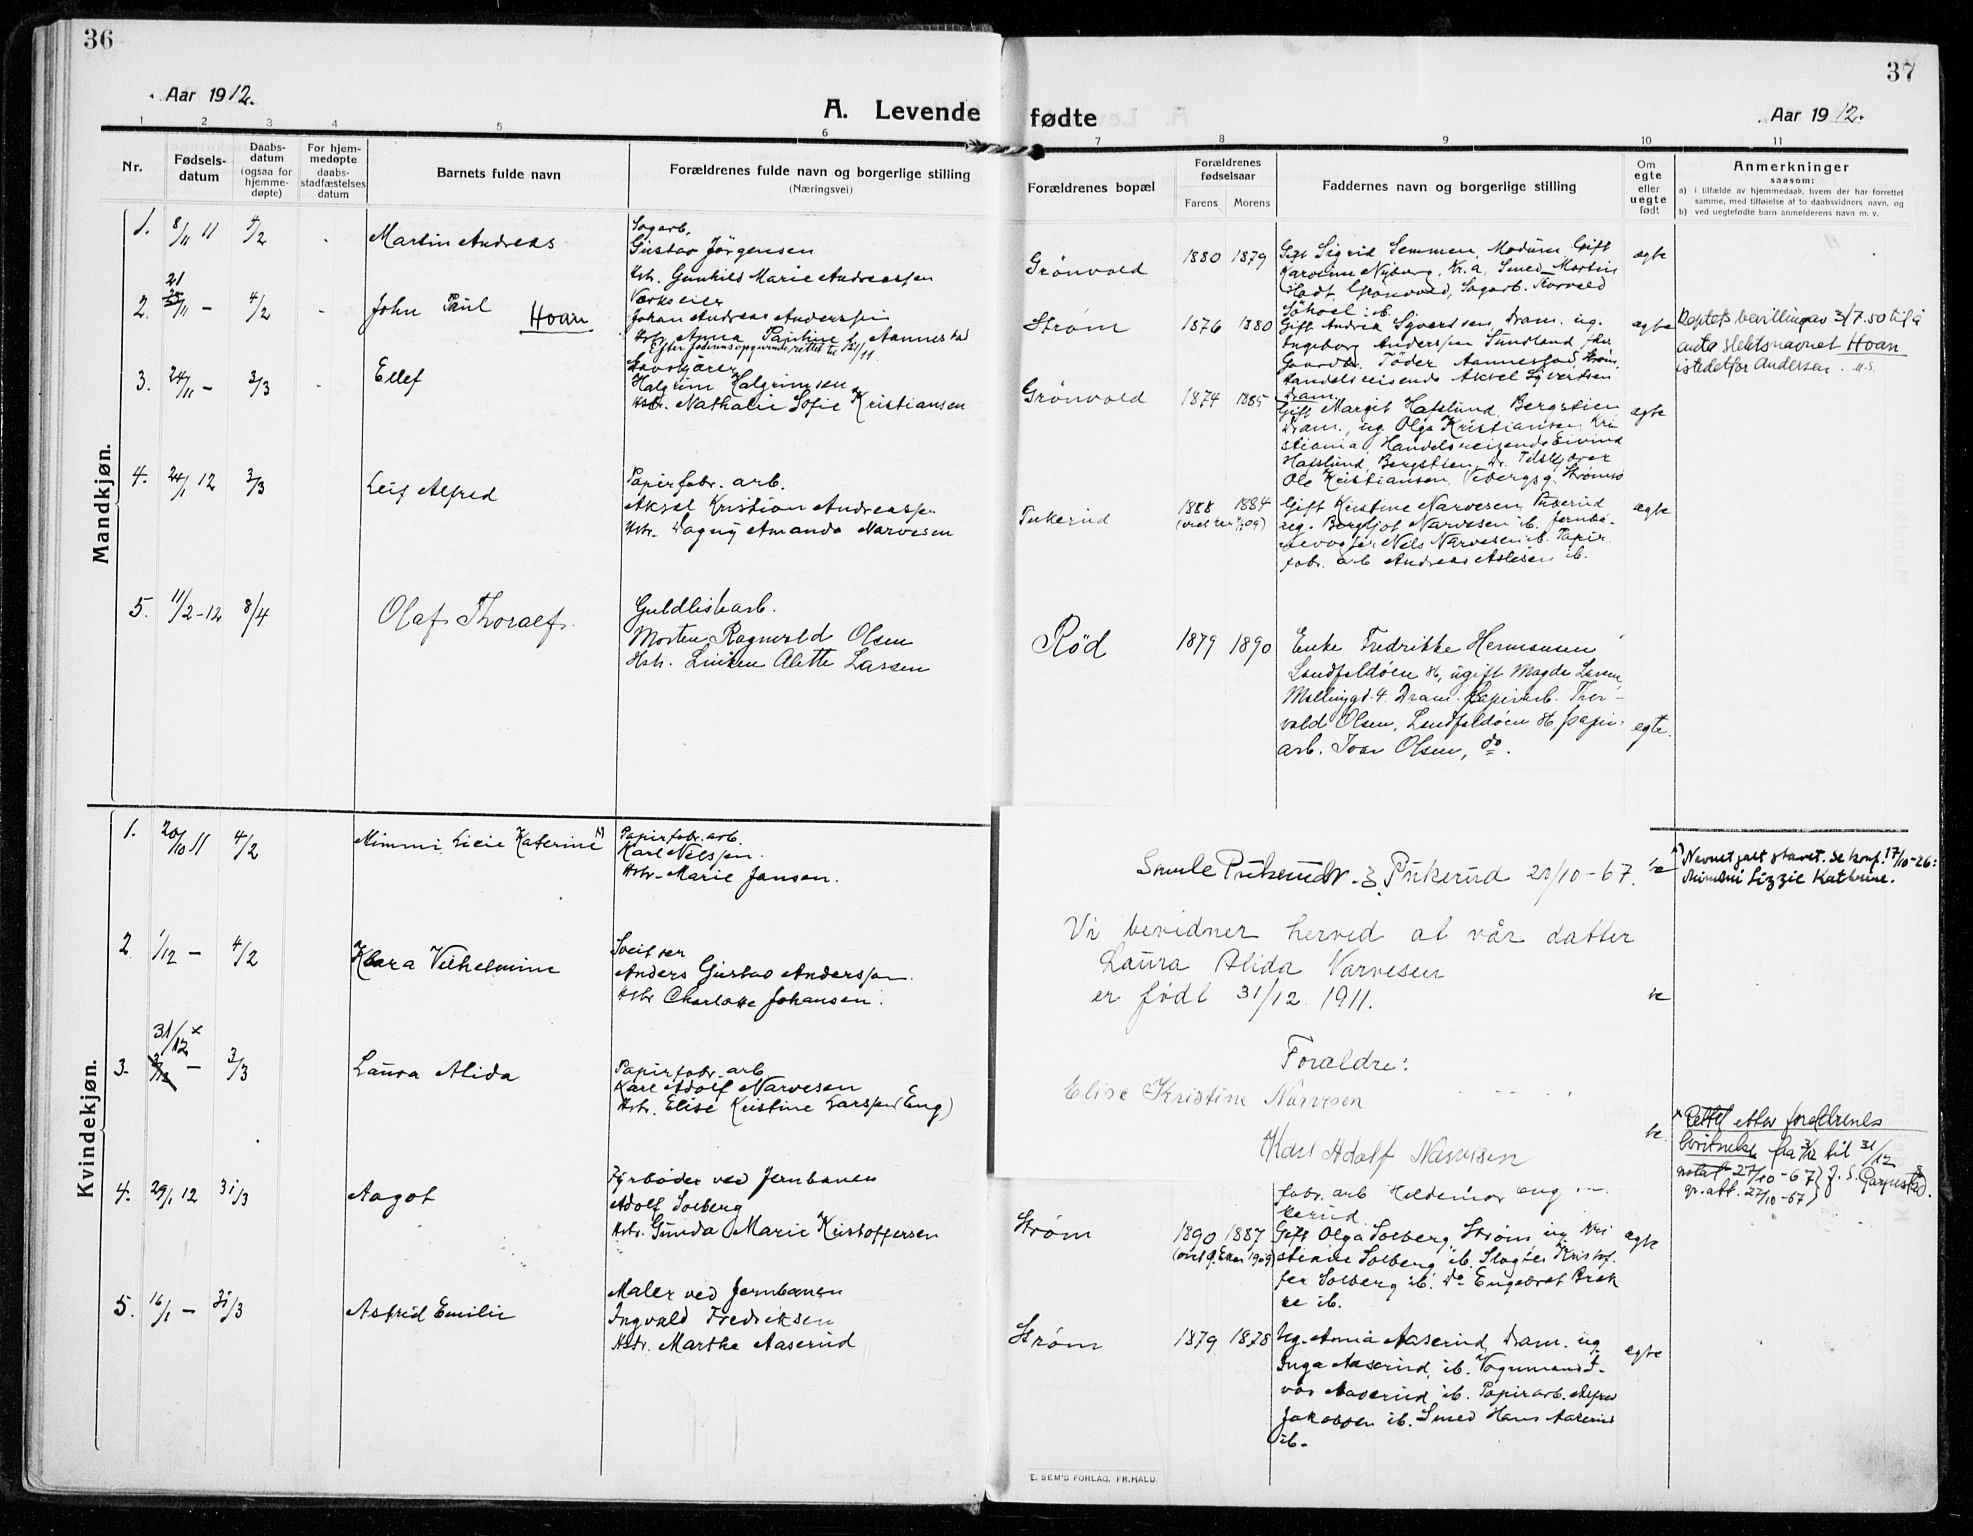 36
Aar 1912.
A. Levende
1 2 3 4 5 6
Nr.
Fødsels-
datum
Daabs-
datum
(ogsaa for
hjemme-
døpte)
For hjem-
medøpte
daabs-
stadfæstelses
datum
Barnets fulde navn
Forældrenes fulde navn og borgerlige stilling
(Næringsvei)
Mandkjøn.
1. 8/11 11 4/2 Martin Andreas
Sagarb.
Gustav Jørgensen
Hstr. Gunhild Marie Andreassen
2. 21/11 - 4/2 John Paul Hoan
Verkseier
Johan Andreas Anderssen
Hstr. Anna Pauline f. Aannestad
Efter faderens opgivende rettet til 21/11
3. 24/11 - 3/3 Ellef
Halgrim Halgrimsen
Hstr. Nathalie Sofie Kristiansen
4. 24/1 12 3/3 Leif Alfred
Papirfabr. arb.
Aksel Kristian Andreassen
Hstr. Dagny Amanda Narvesen
5. 11/2-12 8/4 Olaf Thoralf.
Guldlistarb.
Morten Ragnvald Olsen
Hstr. Lucken Alette Larsen
Kvindekjøn.
1. 20/10 11 4/2 Mimmi Licie Katerine 1)
Papirfabr. arb.
Karl Nilssen.
Hstr. Marie Jansen.
2 1/12 - 4/2 Klara Vilhelmine
Sveitser
Anders Gustav Anderssen.
Hstr Charlotte Johansen.
31/12 x
3. - 3/3 Laura Alida
Papirfabr. arb.
Karl Adolf Narvesen
Hstr. Elise Kristine Larssen (Eng)
4. 29/1 12 31/3 Aagot
Fyrbøder ved Jernbanen
Adolf Solberg
Hstr. Gunda Marie Kristoffersen
5. 16/1 - 31/3 Astrid Emilie
Maler ved Jernbanen
Ingvald Fredriksen
Hstr. Marthe Aaserud
37
fødte
Aar 1912.
7 8 9 10 11
Forældrenes bopæl
Forældrenes
fødselsaar
Farens Morens
Faddernes navn og borgerlige stilling
Om
egte
eller
uegte
født
Anmerkninger
saasom:
a) i tilfælde av hjemmedaab, hvem der har forrettet
samme, med tilføielse af to daabsvidners navn, og
b) ved uegtefødte barn anmelderens navn m. v.
Grønvold 1880 1879
Gift Sigrid Semmen, Modum, Gift
Karoline Nyborg, Kr.a, Smed Martin
Grønvold, Sagarb. Korvald
ib. ægte
Strøm 1876 1880
Gift Andrea Syvertsen, Dram. ug.
Ingeborg Anderssen Sundland,
Gaardbr. Tøder Aannestad, Strøm
Handelsreisende Aksel Syvertsen
Dram. ægte
Deptets bevilling av 3/7.50 til å
anta slektsnavnet Hoan
istedetfor Andersen. M.S.
Grønvold 1874 1885
Gift Margit Hafslund, Bergstien
Dram., ug Olga Kristiansen, Kri
stiania, Handelsreisende Eivind
Hafslund, Bergstien, Dr. Tilskjærer
Ole Kristiansen, Vebergsg, Strømsø
ægte
Pukerud 1888 1884
(viet 1909)
Gift Kirstine Narvesen, Pukerud
ug. Borgljot Narvesen ib. Jernba-
nevogter Nils Narvesen ib. Papir
fabr. arb Andreas Aslesen ib.
ægte
Rød 1879 1890
Enke Fredrikke Hermansen
Landfaldøen 86, ugift Magda Larsen,
Møllingd. 4. Dram. Papirarb. Thor-
vald Olsen, Landfaldøen 86 papir-
arb. Ivar Olsen, do. egte.
1) Navnet galt stavet. Se konf. 17/10-26:
Mimmi Lizzie Kathrine.
Smule Pukerud Pukerud 20/10-67.
Vi bevidner herved at vår datter
Laura Alida Narvesen
er født 31/12 1911.
Foraldre:
Elise Kristine Narvesen
Karl Adolf Narvesen
x Rettet etter foreldrenes
bevitnelse fra 3/12 til 31/12
notat 27/10-67
gr. att. 27/10-67
fabr. arb Hildemar Eng
kerud.
Strøm 1890 1887
Gift Olga Solberg, Strøm, ug Kri
stiane Solberg ib. Slagter Kristof-
fer Solberg ib. Do Engebret Brek
ke ib. ægte
Strøm 1879 1878
Ug. Anna Aaserud, Dram. ug
Inga Aaserud, ib. Vognmand I-
var Aaserud, ib. Papirarb. Alfred
Jakobsen ib. Smed Hans Aaserud
ib. egte
E. SEM'S FORLAG, FR.HALD.